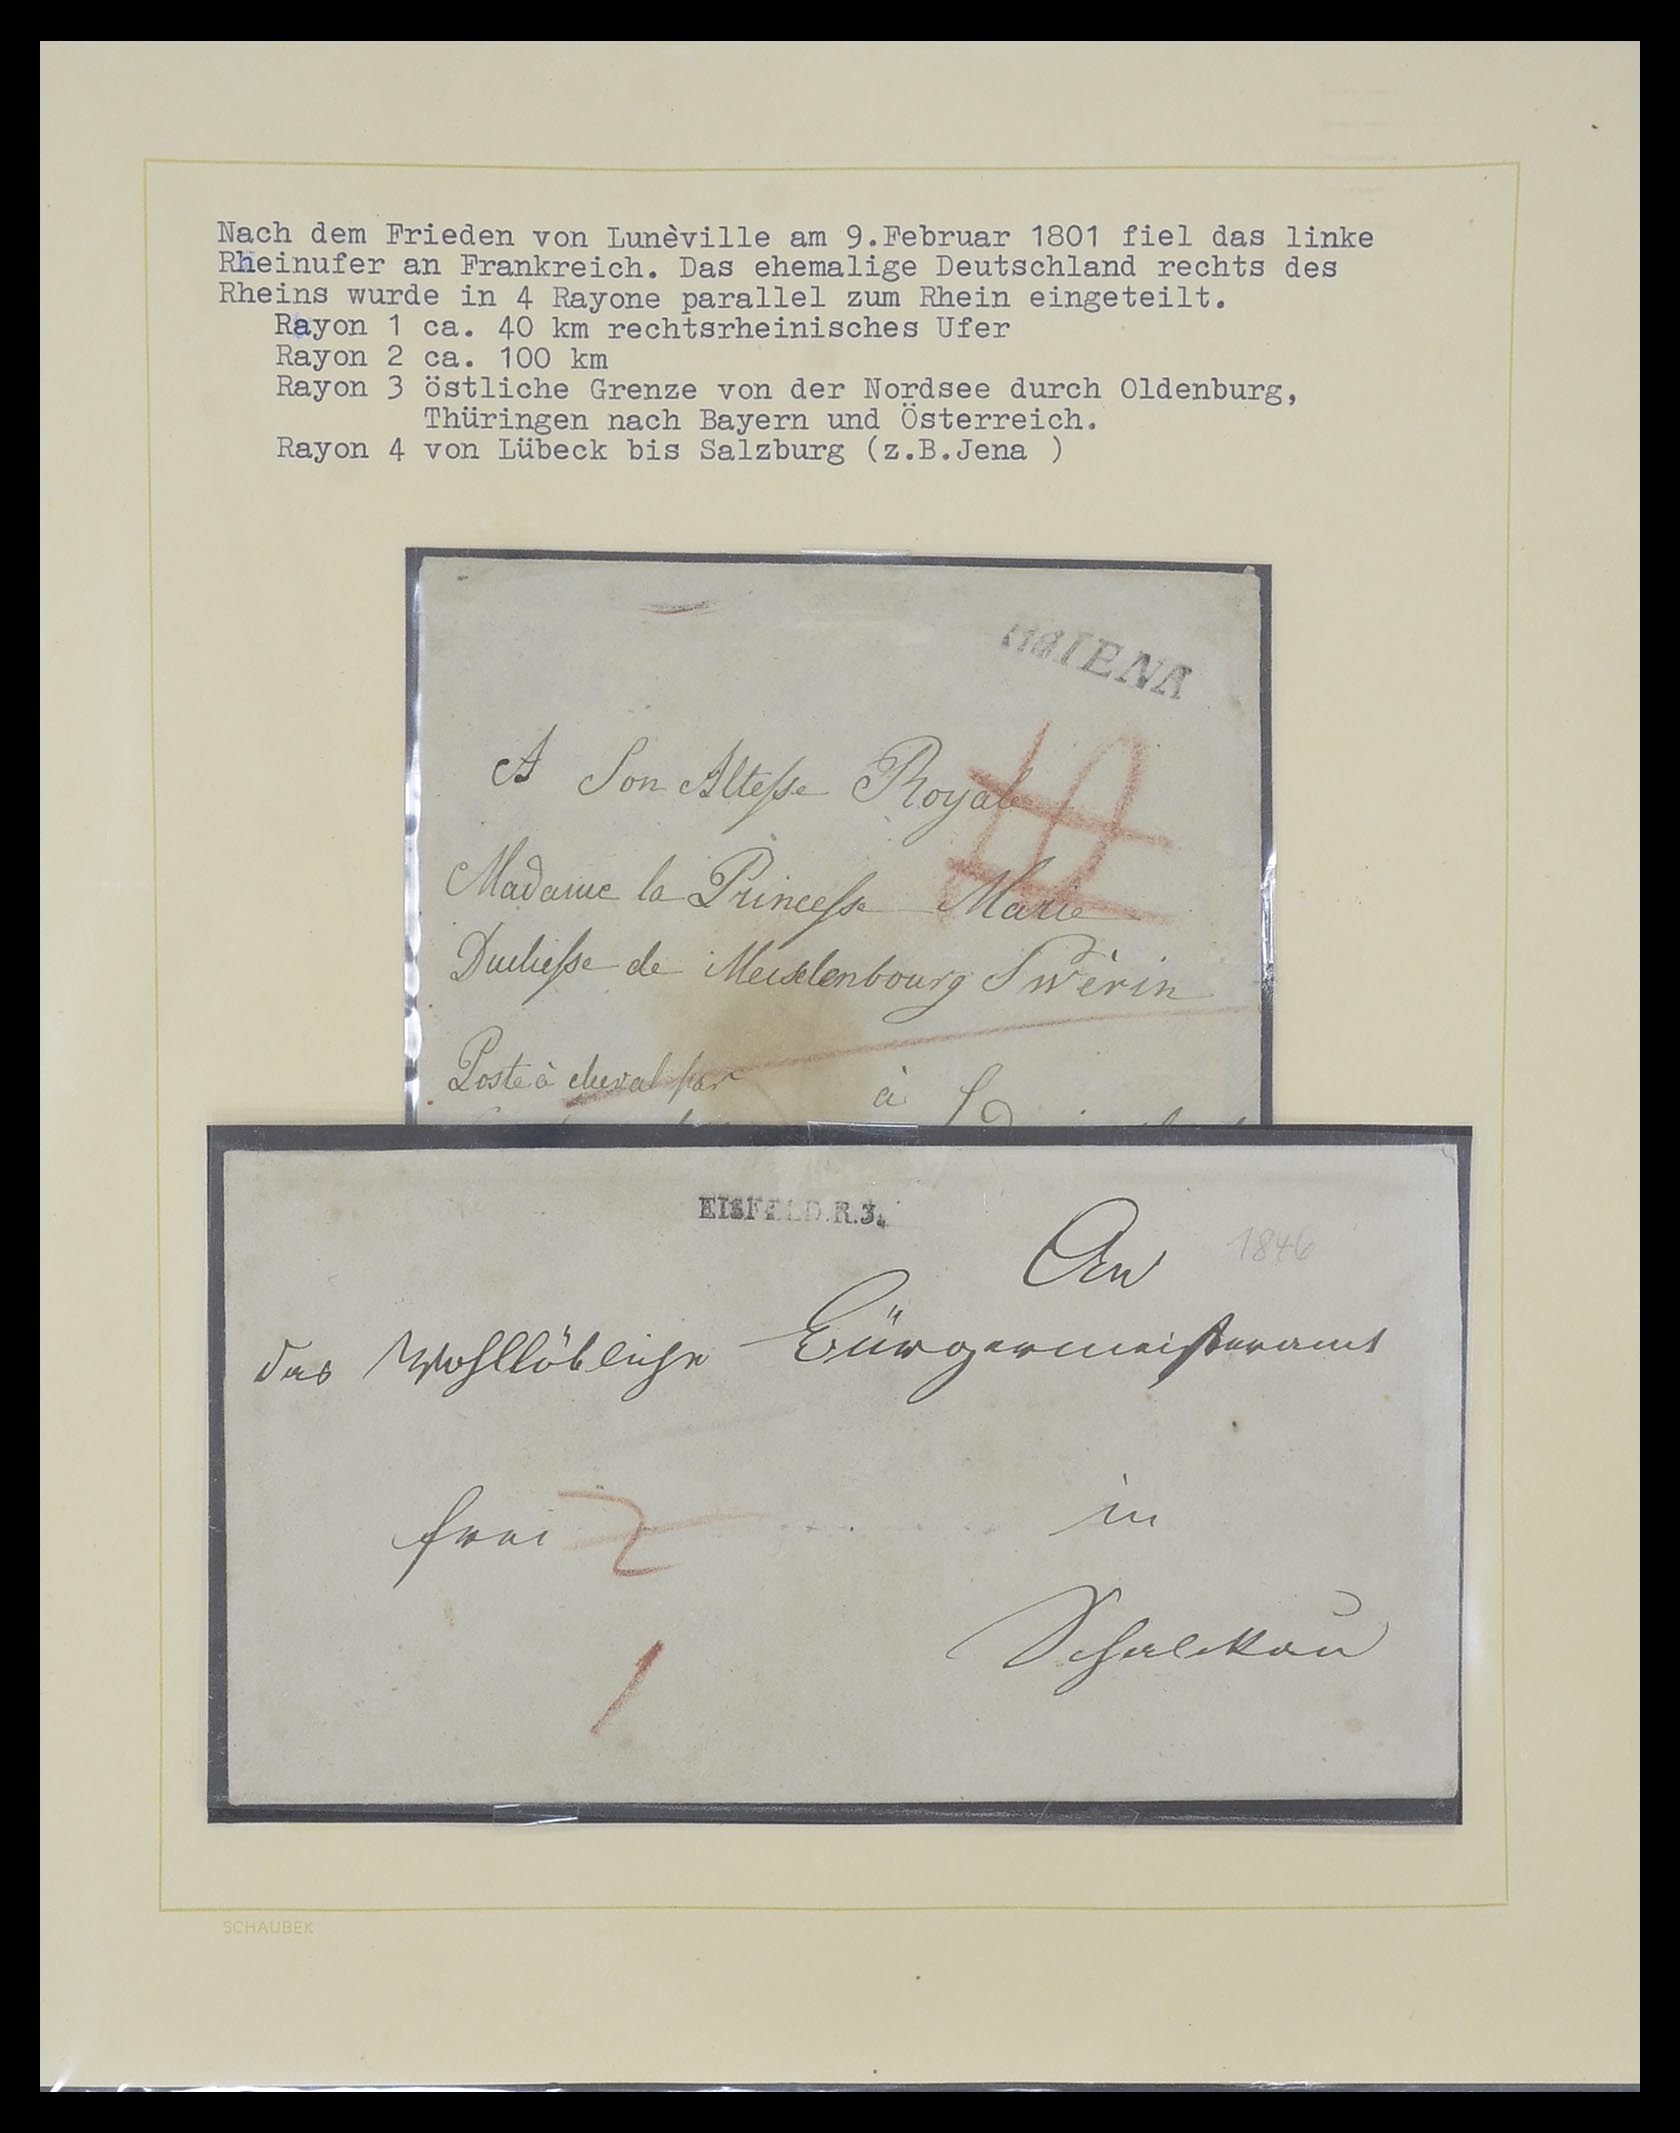 Nach dem Frieden von Lunèville am 9.Februar 1801 fiel das linke
Rheinufer an Frankreich. Das ehemalige Deutschland rechts des
Rheins wurde in 4 Rayone parallel zum Rhein eingeteilt.
Rayon 1 ca. 40 km rechtsrheinisches Ufer
Rayon 2 ca. 100 km
Rayon 3 östliche Grenze von der Nordsee durch Oldenburg,
Thüringen nach Bayern und Österreich.
Rayon 4 von Lübeck bis Salzburg (z.B.Jena )
IENA
A Son Altesse Royale
Madame la Princesse Marie
Duchesse de Mecklenbourg Swèrin
Poste à cheval par à
EISFELD.R.3.
An
1846
das Wohllöbliche Bürgermeisteramt
frei 2 in
Schalckau
1
SCHAUBEK